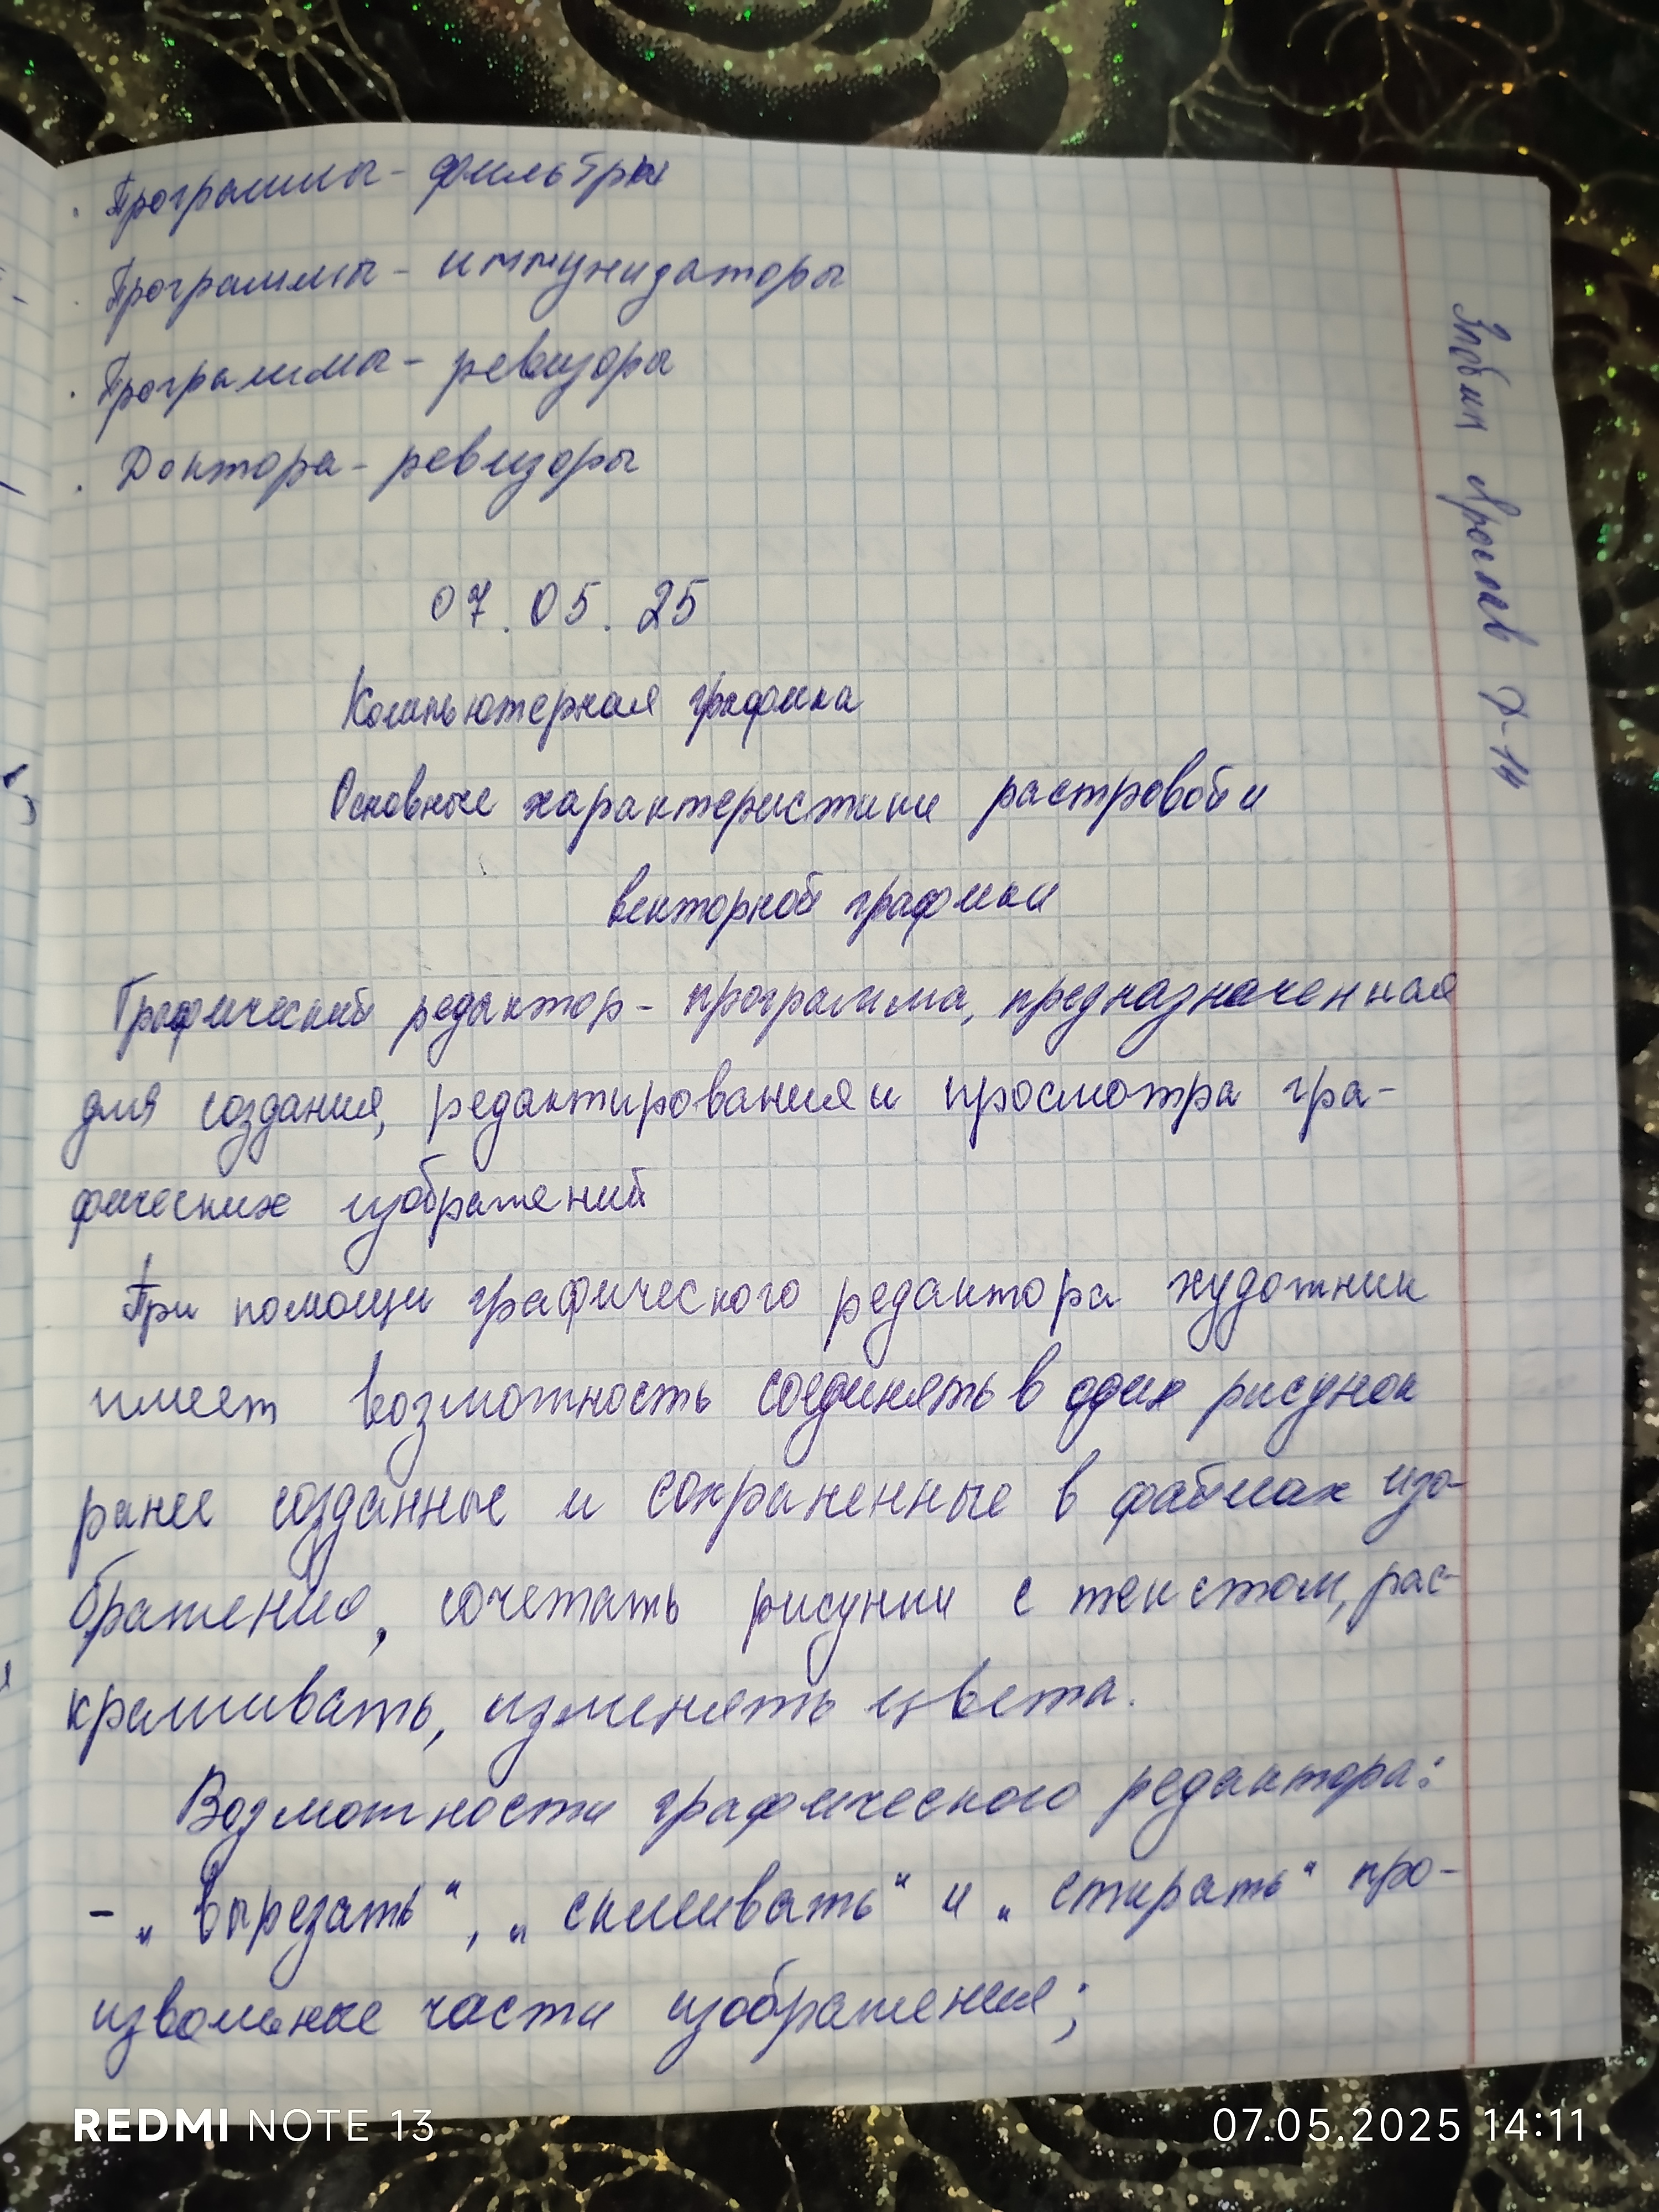 · Программы - фильтры
· Программы - иммунизаторы
· Программы - ревизоры
· Доктора - ревизоры
07.05.25
Компьютерная графика
Основные характеристики растровой и
векторной графики
Графический редактор - программа, предназначенная
для создания, редактирования и просмотра гра-
фических изображений
При помощи графического редактора художник
имеет возможность соединять в один рисунок
ранее созданные и сохраненные в файлах изо-
бражения, сочетать рисунки с текстом, рас-
крашивать, изменять цвета.
Возможности графического редактора:
- „вырезать“, „склеивать“ и „стирать“ про-
извольные части изображения;
Злобин
REDMI NOTE 13
07.05.2025 14:11